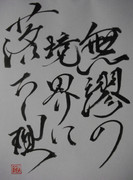 無謬の
境界に
落ち